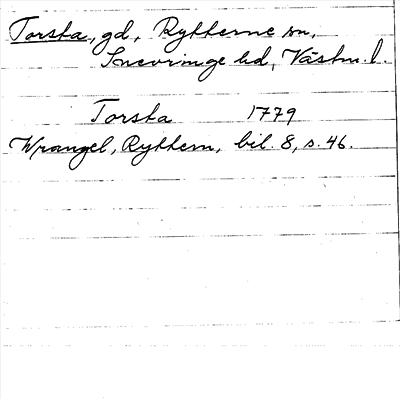 Torsta, gd, Rytterne sn,
Snevringe hd, Västm. l.
Torsta 1779
Wrangel, Ryttern, bil. 8, s. 46.